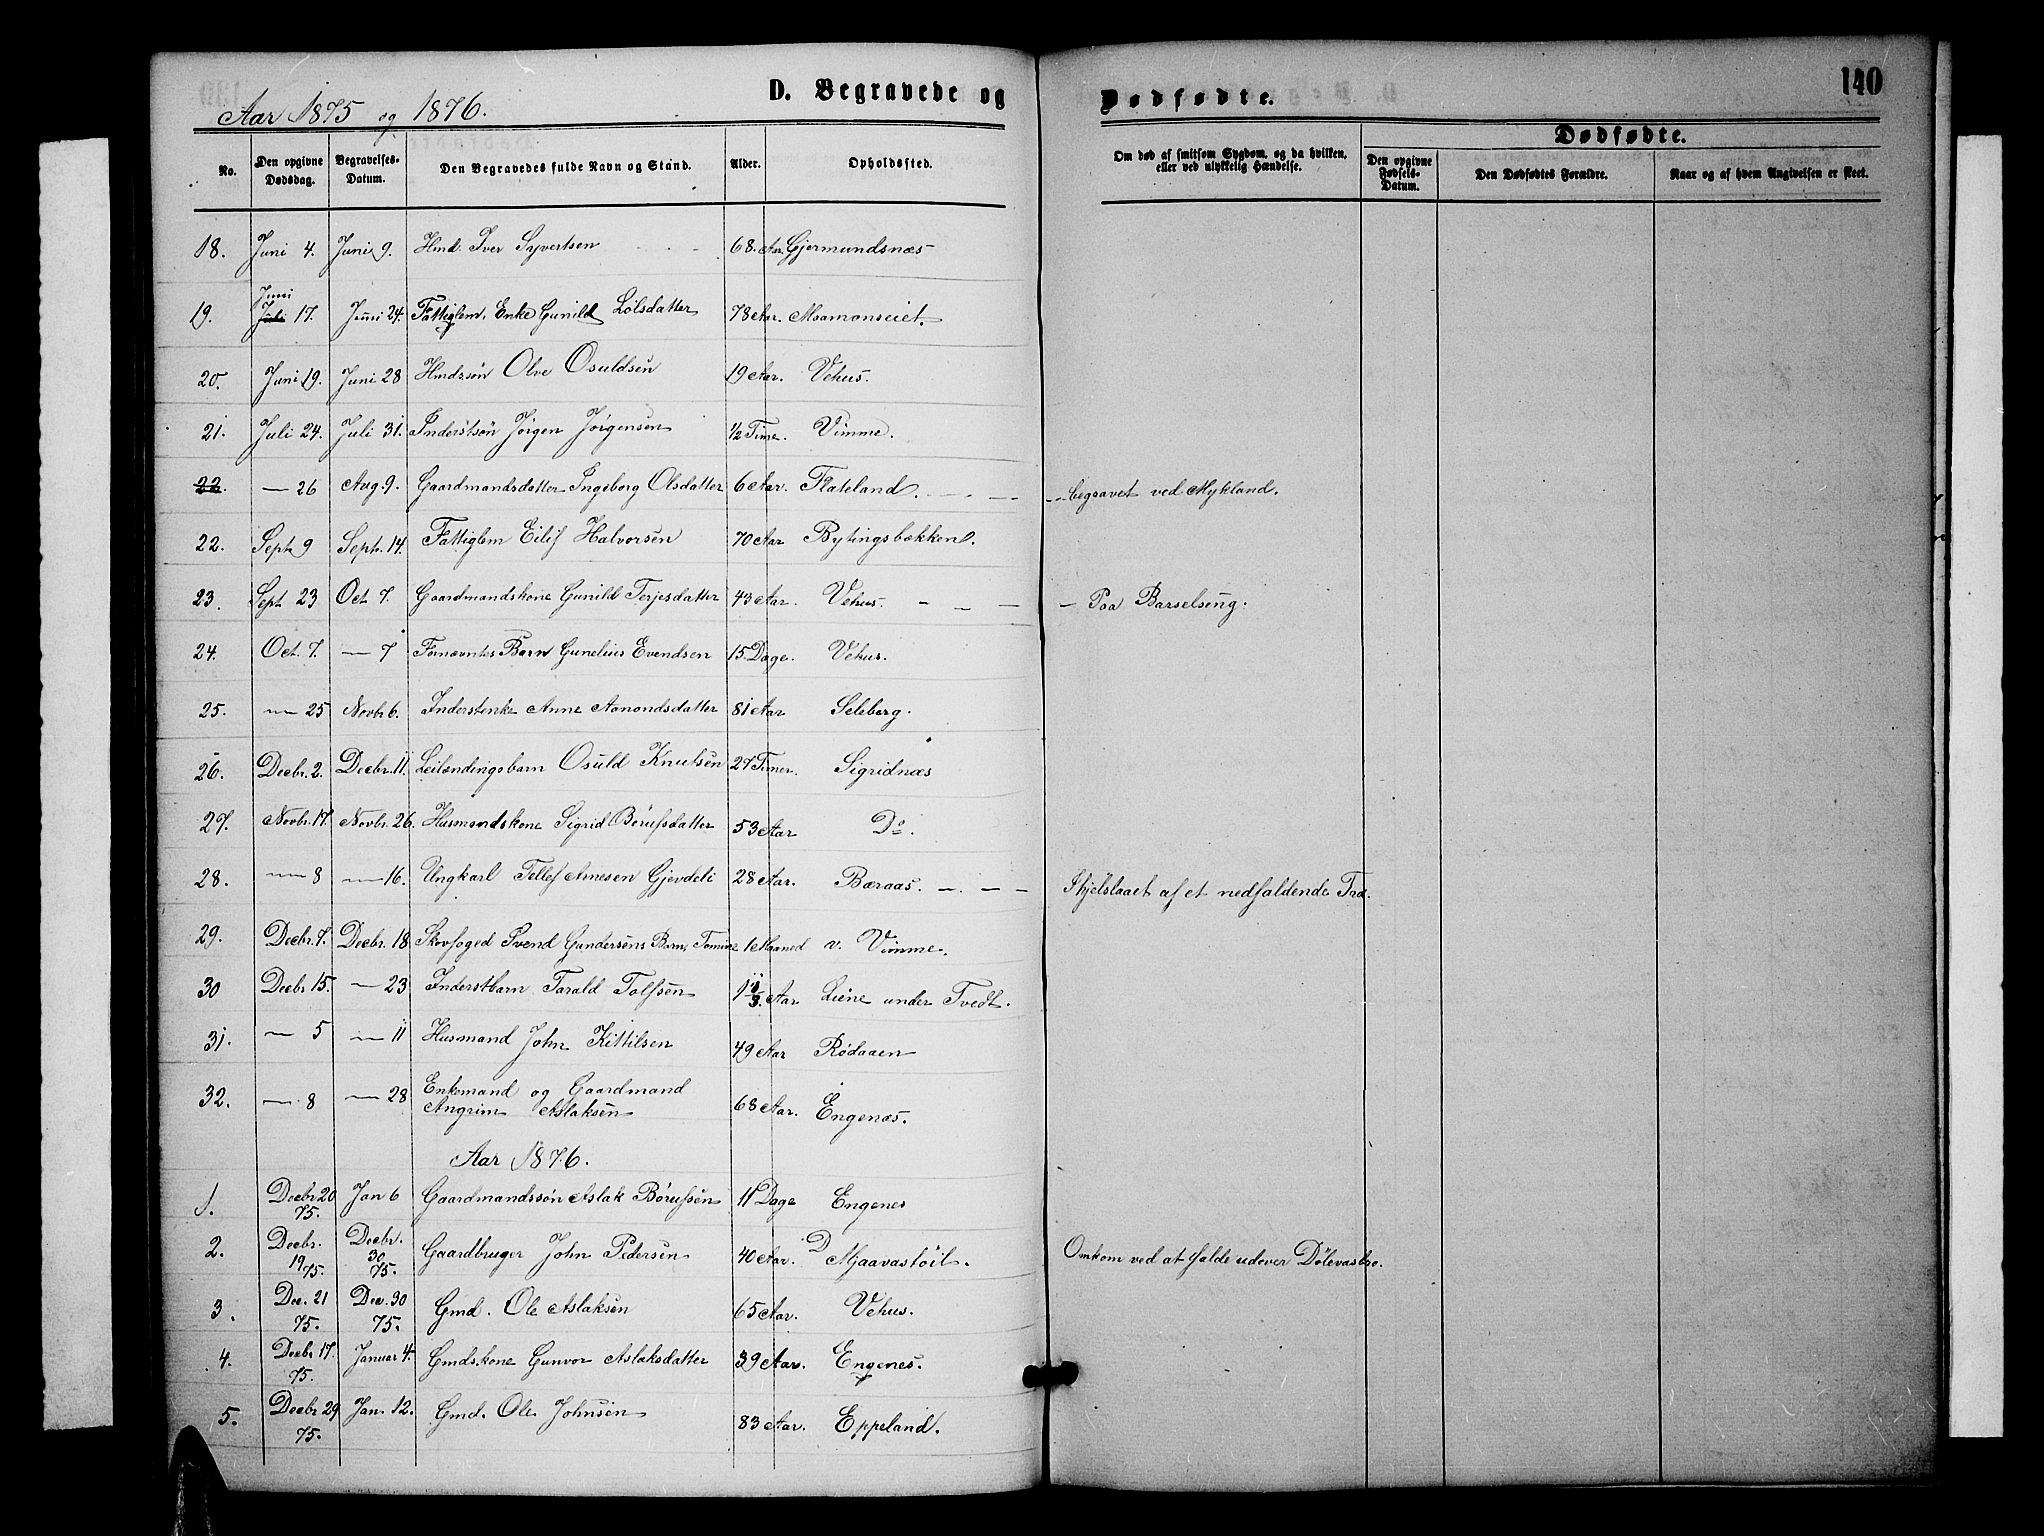 Aar 1875 og 1876.
D. Begravede og
Dødfødte.
140
No.
Den opgivne Dødsdag.
Begravelses-Datum.
Den Begravedes fulde Navn og Stand.
Alder.
Opholdssted.
Om død af smitsom Sygdom, og da hvilken, eller ved ulykkelig Hændelse.
Dødfødte.
Den opgivne Fødsels-Datum.
Den Dødfødtes Forældre.
Naar og af hvem Angivelsen er skeet.
18. Juni 4. Juni 9. Hmd. Iver Syvertsen 68. Aar. Gjermundsnæs
19. Juli Juni 17. Juni 24. Fattiglem, Enke Gunild Lølsdatter 78 Aar. Maamonseiet.
20. Juni 19. Juni 28 Hmdssøn Olve Osuldsen 19 Aar. Vehus.
21. Juli 24. Juli 31. Inderstsøn Jørgen Jørgensen 1/2 Time. Vimme.
22. — 26 Aug. 9. Gaardmandsdatter Ingeborg Olsdatter 6 Aar. Flateland. - - - begravet ved Mykland.
22. Sept 9 Sept. 14. Fattiglem Eilif Halvorsen 70 Aar Bytingsbækken.
23. Sept 23 Oct 7. Gaardmandskone Gunild Terjesdatter 43 Aar. Vehus. - - - Paa Barselseng.
24. Oct. 7. — 7 Fornævntes Barn Gunelius Evendsen 15 Dage. Vehus.
25. — 25 Novbr 6. Inderstenke Anne Aamondsdatter 81 Aar Seleberg.
26. Decbr. 2. Decbr. 11. Leilændingsbarn Osuld Knutsen 27 Timer. Sigridnæs
27. Novbr. 17. Novbr. 26. Husmandskone Sigrid Børufsdatter 53 Aar Do.
28. — 8 — 16. Ungkarl Tellef Arnesen Gjevdeli 28 Aar. Bæraas. - - - Ihjelslaaet af et nedfaldende Træ.
29. Decbr. 7. Decbr. 18 Skovfoged Svend Gundersens Barn, Tomine 1 Maaned v. Vimme.
30 Decbr 15. — 23 Inderstbarn Tarald Tolfsen Aar Liene under Tvedt.
31. — 5 — 11 Husmand John Kittilsen 49 Aar Rødaaen
32. — 8 — 28 Enkemand og Gaardmand
Angrim Aslaksen 68 Aar. Engenæs.
Aar 1876.
1. Decbr 20 75. Jan 6 Gaardmandssøn Aslak Børufsen 11 Dage Engenes
2. Decbr. 19 75. Decbr. 30 75. Gaardbruger John Pedersen 40 Aar. Mjaavastöil. Omkom ved at falde udover Dölevasbro.
3. Dec. 21 75. Dec. 30 75. Gmd. Ole Aslaksen 65 Aar. Vehus.
4. Decbr 17. 75. Januar 4. Gmdskone Gunvor Aslaksdatter 39 Aar. Engenes.
5. Decbr 29 75. Jan. 12. Gmd. Ole Johnsen 83 Aar. Eppeland.